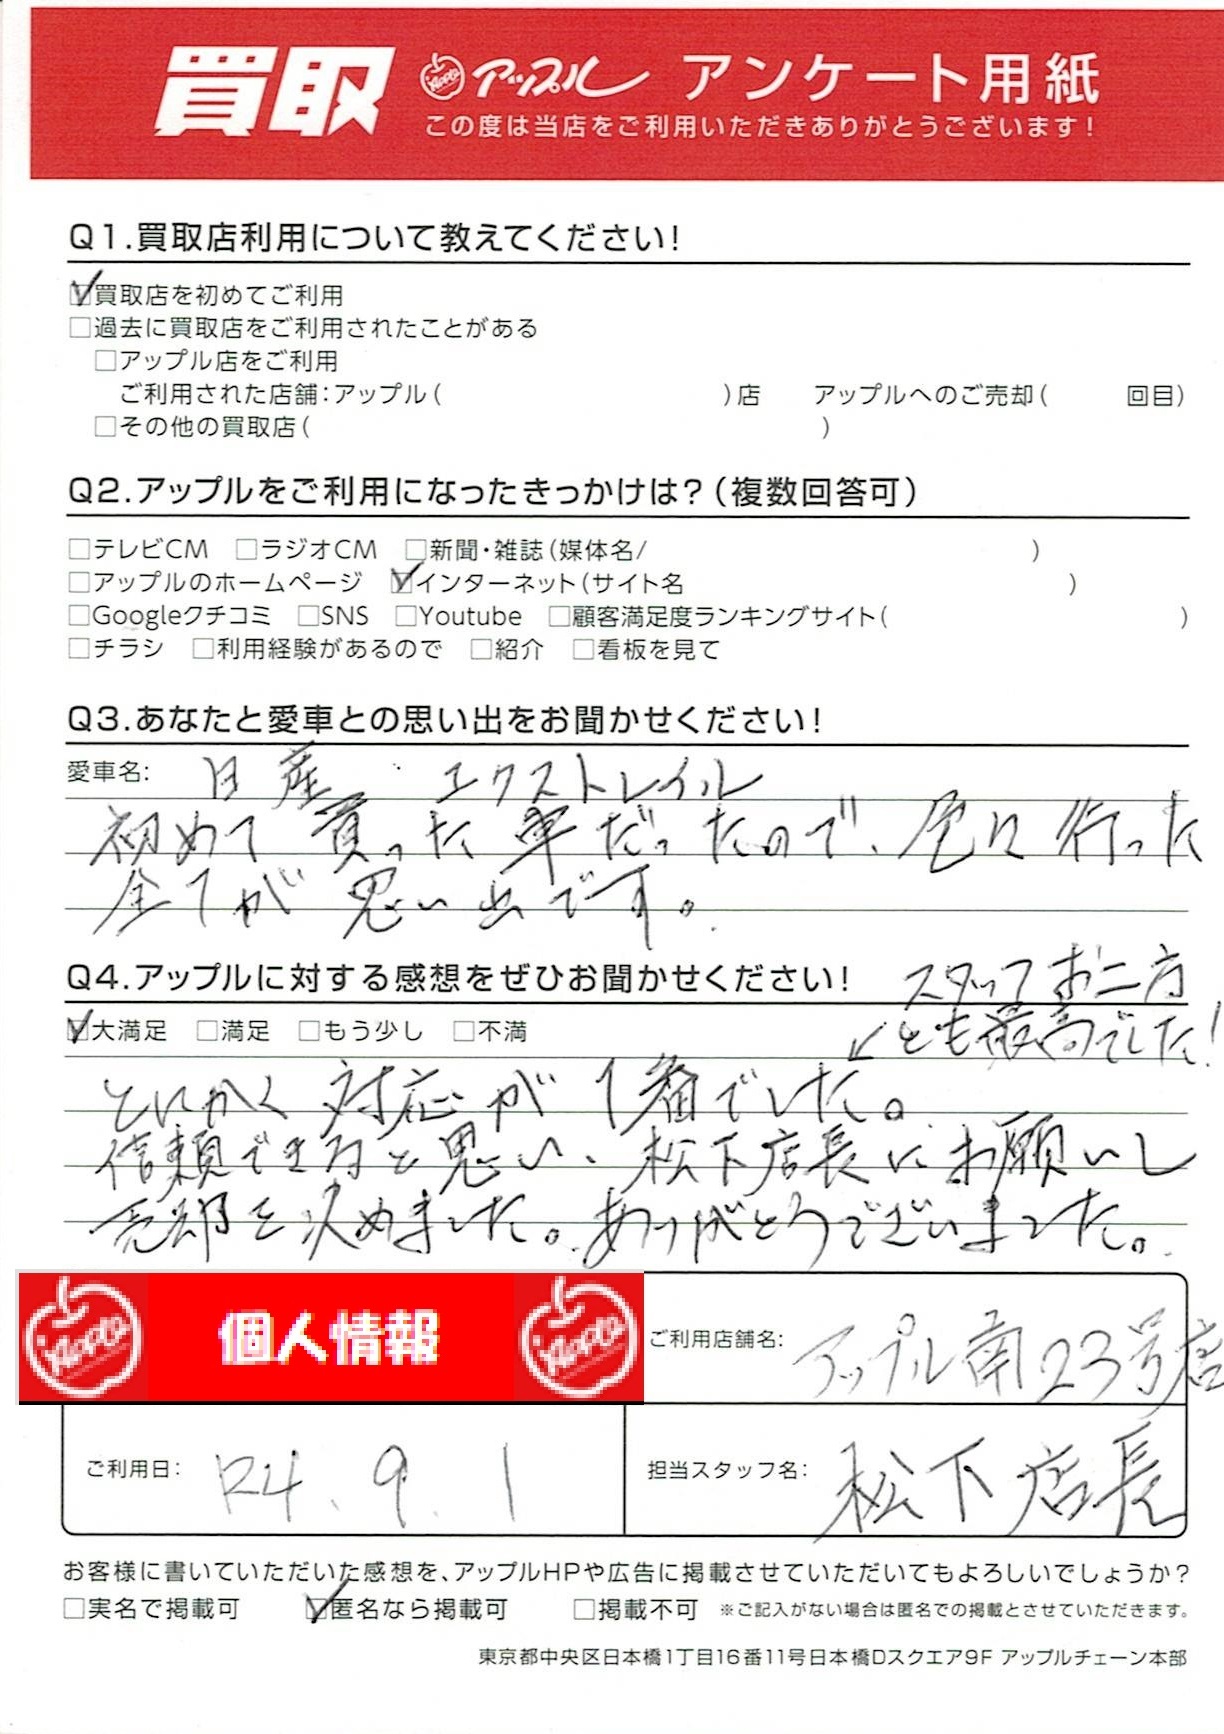 買取 Apple アップル アンケート用紙
この度は当店をご利用いただきありがとうございます!
Q1.買取店利用について教えてください!
☑買取店を初めてご利用
□過去に買取店をご利用されたことがある
□アップル店をご利用
ご利用された店舗:アップル( )店 アップルへのご売却( 回目)
□その他の買取店( )
Q2.アップルをご利用になったきっかけは?(複数回答可)
□テレビCM □ラジオCM □新聞・雑誌(媒体名/ )
□アップルのホームページ ☑インターネット(サイト名 )
□Googleクチコミ □SNS □Youtube □顧客満足度ランキングサイト( )
□チラシ □利用経験があるので □紹介 □看板を見て
Q3.あなたと愛車との思い出をお聞かせください!
愛車名: 日産 エクストレイル
初めて買った車だったので、色々行った
全てが思い出です。
Q4.アップルに対する感想をぜひお聞かせください!
スタッフお二方
とも最高でした!
☑大満足 □満足 □もう少し □不満
とにかく対応が1番でした。
信頼できると思い、松下店長にお願いし
売却を決めました。ありがとうございました。
Apple 個人情報 Apple
ご利用店舗名: アップル南23号店
ご利用日: R4.9.1
担当スタッフ名: 松下店長
お客様に書いていただいた感想を、アップルHPや広告に掲載させていただいてもよろしいでしょうか?
□実名で掲載可 ☑匿名なら掲載可 □掲載不可 ※ご記入がない場合は匿名での掲載とさせていただきます。
東京都中央区日本橋1丁目16番11号日本橋Dスクエア9F アップルチェーン本部